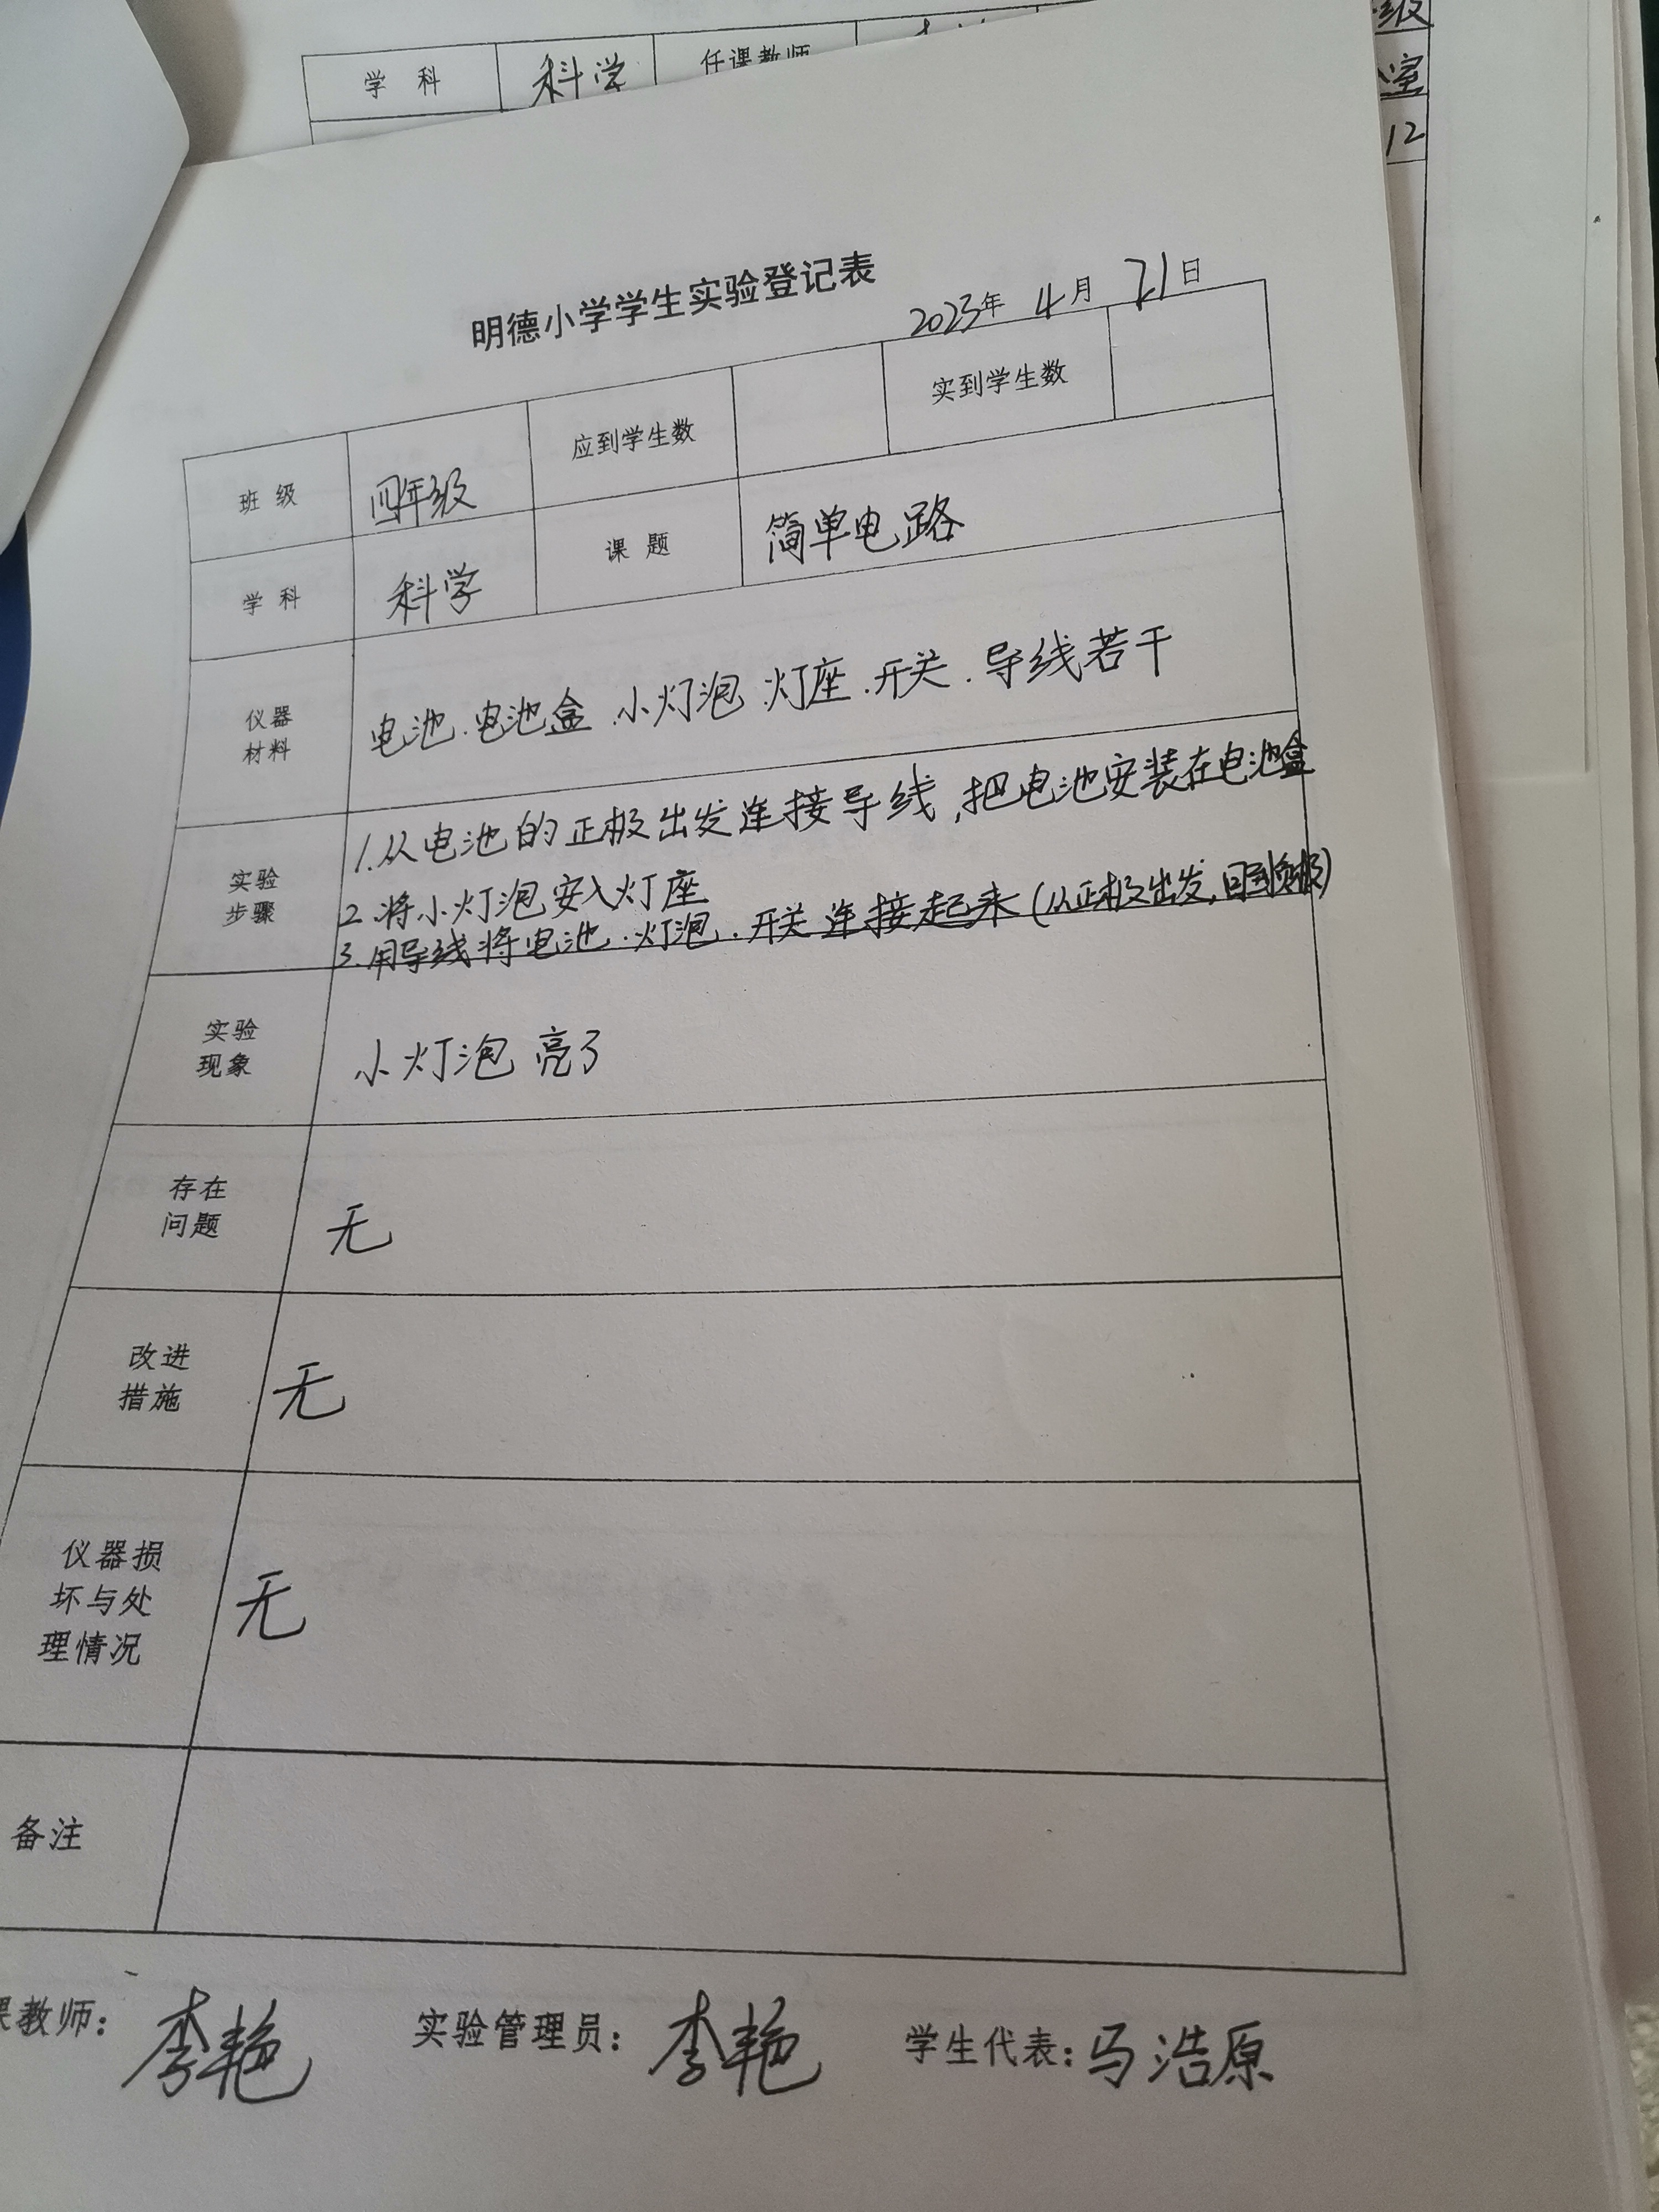 学 科 科学 任课教师
级
室
12
明德小学学生实验登记表
2023年 4月 21日
班 级 四年级 应到学生数 实到学生数
学 科 科学 课 题 简单电路
仪器
材料
电池.电池盒.小灯泡.灯座.开关.导线若干
实验
步骤
1.从电池的正极出发连接导线,把电池安装在电池盒
2.将小灯泡安入灯座
3.用导线将电池.灯泡.开关连接起来(从正极出发,回到负极)
实验
现象
小灯泡亮了
存在
问题
无
改进
措施
无
仪器损
坏与处
理情况
无
备注
课教师: 李艳 实验管理员: 李艳 学生代表: 马浩原